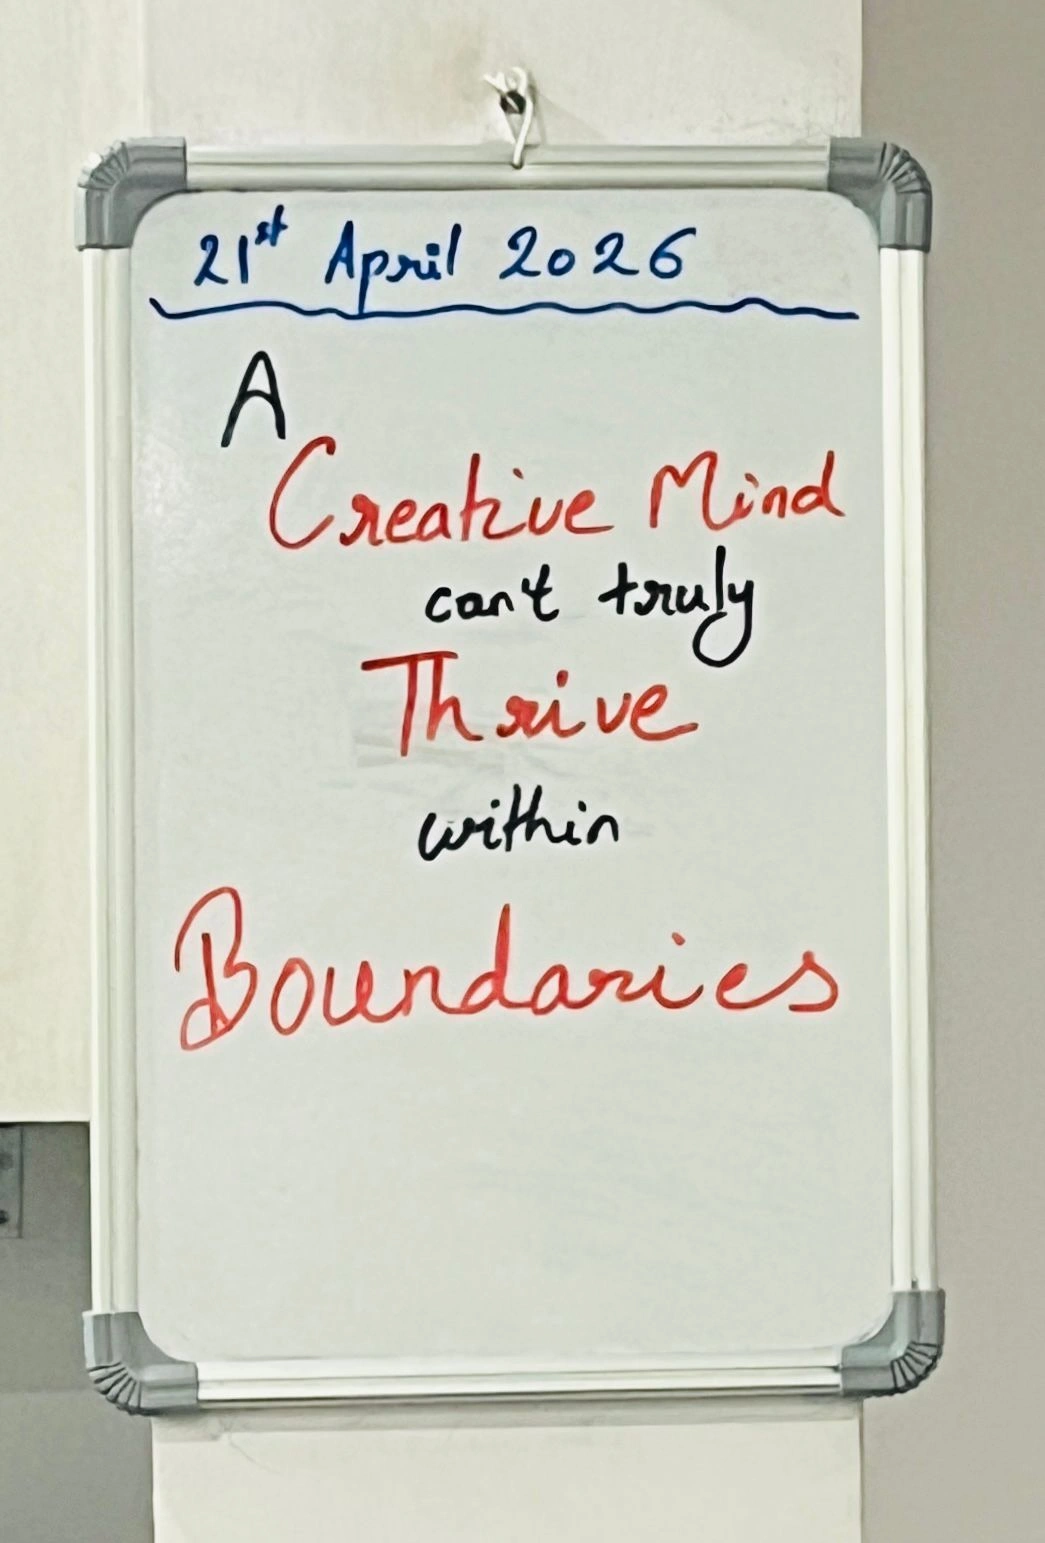 21st April 2026
A
Creative Mind
can't truly
Thrive
within
Boundaries